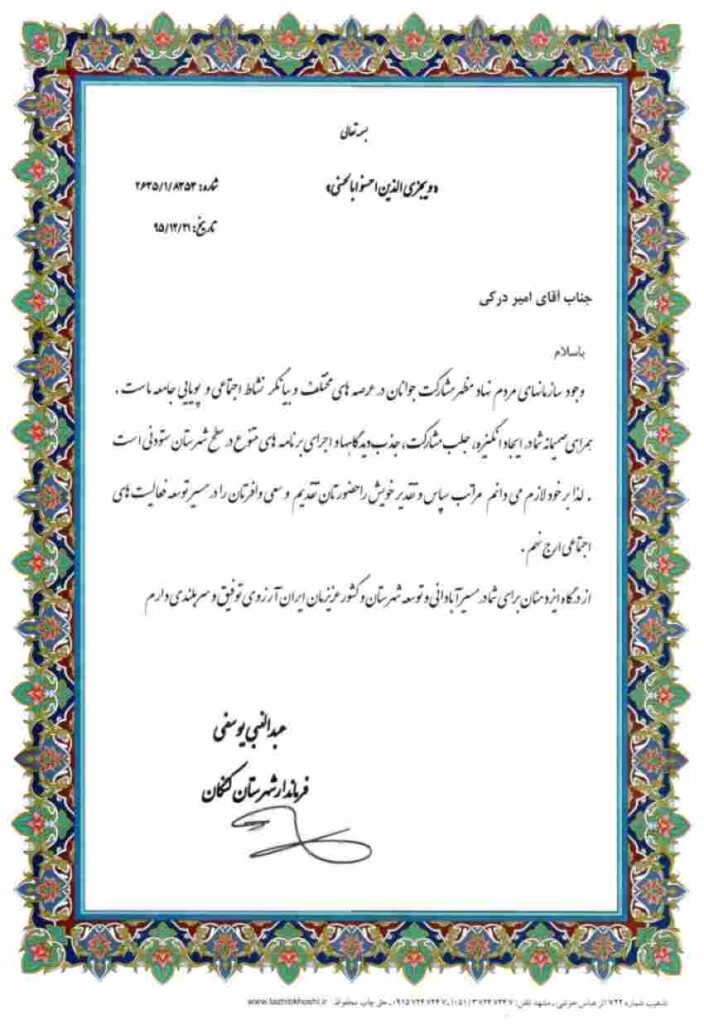 بسمه تعالی
«ویجزی الذین احسنوا بالحسنی»
شماره: ۲۶۳۵/۱/۸۳۵۳
تاریخ: ۹۵/۱۲/۲۱
جناب آقای امیر درکی
باسلام
وجود سازمانهای مردم نهاد مظهر مشارکت جوانان در عرصه های مختلف و بیانگر نشاط اجتماعی و پویایی جامعه ماست .
همراهی صمیمانه شما در ایجاد انگیزه، جلب مشارکت، جذب دیدگاهها و اجرای برنامه های متنوع در سطح شهرستان ستودنی است
. لذا بر خود لازم می دانم مراتب سپاس و تقدیر خویش را حضورتان تقدیم و سعی وافرتان را در مسیر توسعه فعالیت های
اجتماعی ارج نهم .
از درگاه ایزد منان برای شما در مسیر آبادانی و توسعه شهرستان و کشور عزیزمان ایران آرزوی توفیق و سربلندی دارم
عبدالنبی یوسفی
فرماندار شهرستان کنگان
تذهیب شماره ۷۲۲ اثر عباس خوشی ـ مشهد تلفن: ۷ ۷۲۴ ۳۷۲۴ (۰۵۱) ـ ۷۲۴۷ ۷۲۴ ۰۹۱۵ ـ حق چاپ محفوظ www.tazhibkhoshi.ir